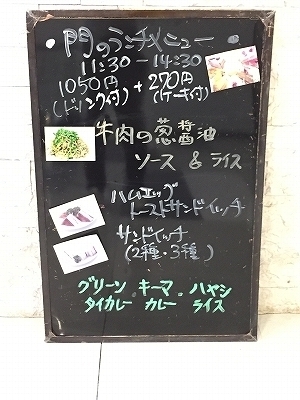 門のランチメニュー
11:30-14:30
1050円 + 270円
(ドリンク付) (ケーキ付)
牛肉の葱醤油
ソース & ライス
ハムエッグ
トーストサンドイッチ
サンドイッチ
(2種・3種)
グリーン キーマ ハヤシ
タイカレー カレー ライス